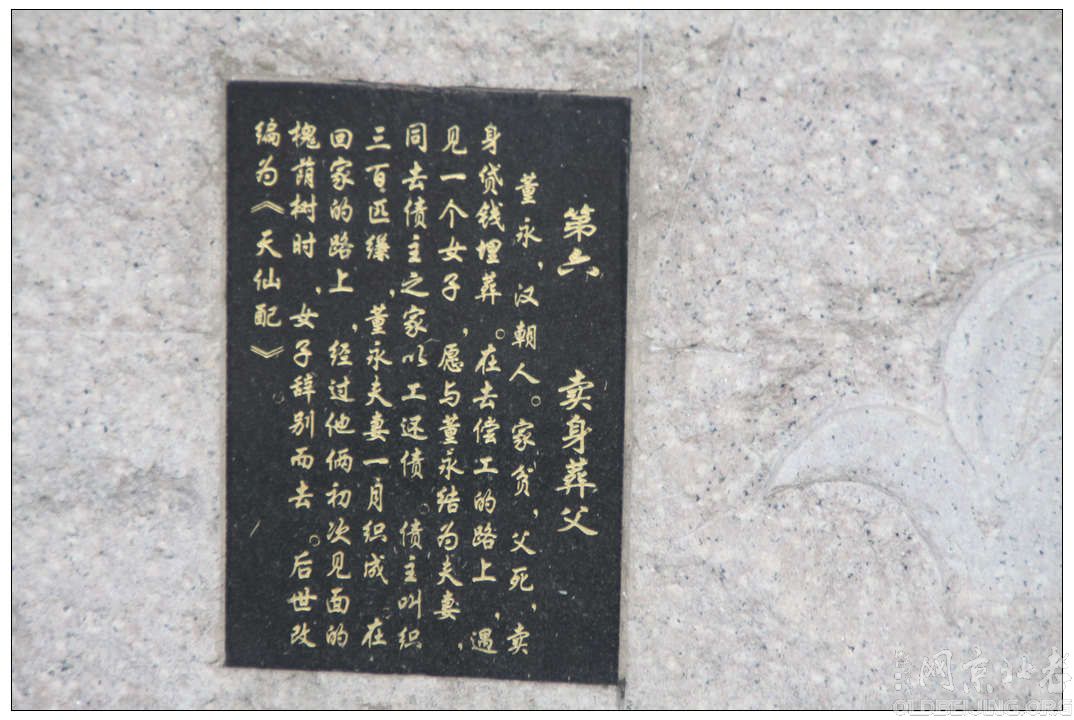 第六 卖身葬父
董永，汉朝人。家贫，父死，卖
身贷钱埋葬。在去偿工的路上，遇
见一个女子，愿与董永结为夫妻，
同去债主之家以工还债。债主叫织
三百匹缣，董永夫妻一月织成。在
回家的路上，经过他俩初次见面的
槐荫树时，女子辞别而去。后世改
编为《天仙配》。
老北京网
OLDBEIJING.ORG